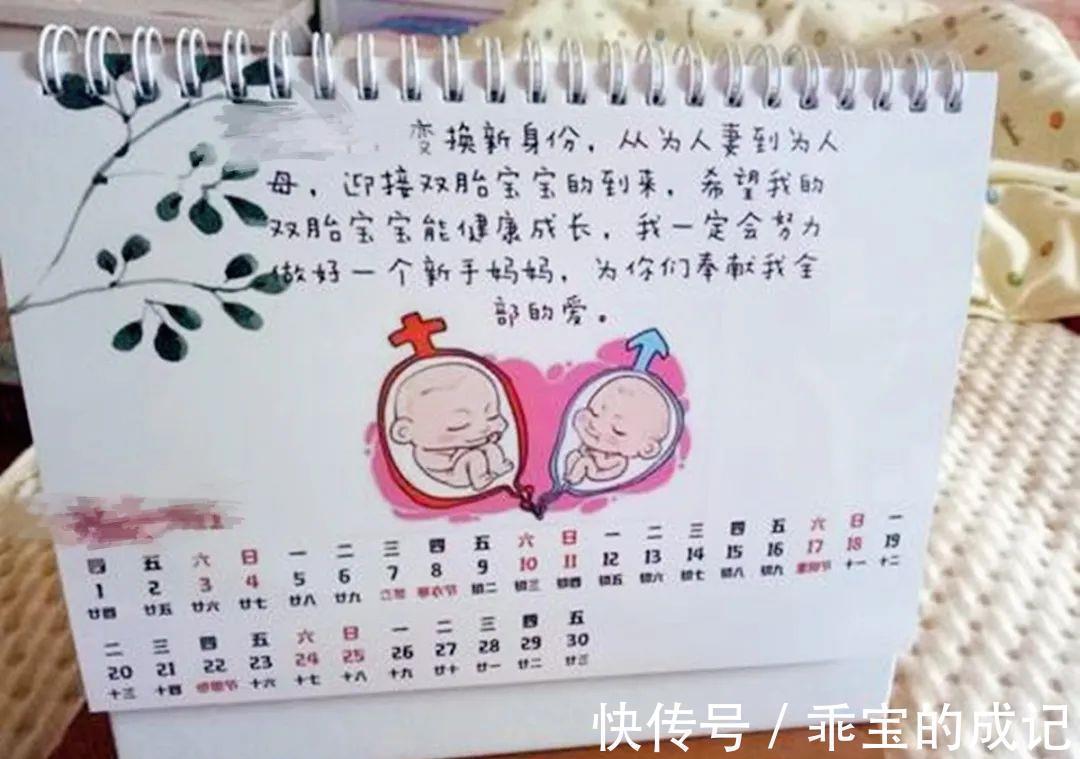 变换新身份，从为人妻到为人
母，迎接双胎宝宝的到来，希望我的
双胎宝宝能健康成长，我一定会努力
做好一个新手妈妈，为你们奉献我全
部的爱。
四 五 六 日 一 二 三 四 五 六 日 一 二 三 四 五 六 日 一
1 2 3 4 5 6 7 8 9 10 11 12 13 14 15 16 17 18 19
廿四 廿五 廿六 廿七 廿八 廿九 立冬 寒衣节 初二 初三 初四 初五 初六 初七 初八 初九 十一 十二
二 三 四 五 六 日 一 二 三 四 五
20 21 22 23 24 25 26 27 28 29 30
十三 十四 感恩节 十六 十七 十八 十九 廿十 廿一 廿二 廿三
快传号 / 乖宝的成记